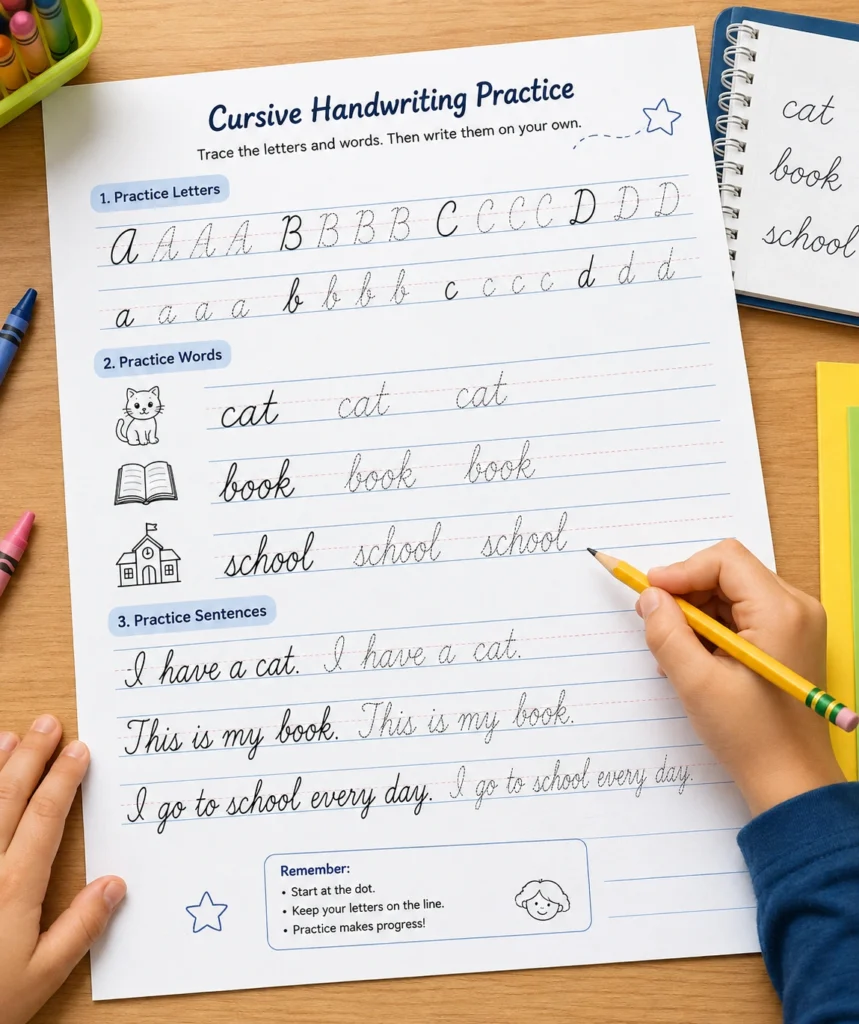 Cursive Handwriting Practice
Trace the letters and words. Then write them on your own.
1. Practice Letters
A A A A B B B B C C C C D D D
a a a a b b b b c c c c d d d
2. Practice Words
cat cat cat
book book book
school school school
3. Practice Sentences
I have a cat. I have a cat.
This is my book. This is my book.
I go to school every day. I go to school every day.
Remember:
• Start at the dot.
• Keep your letters on the line.
• Practice makes progress!
cat
book
school